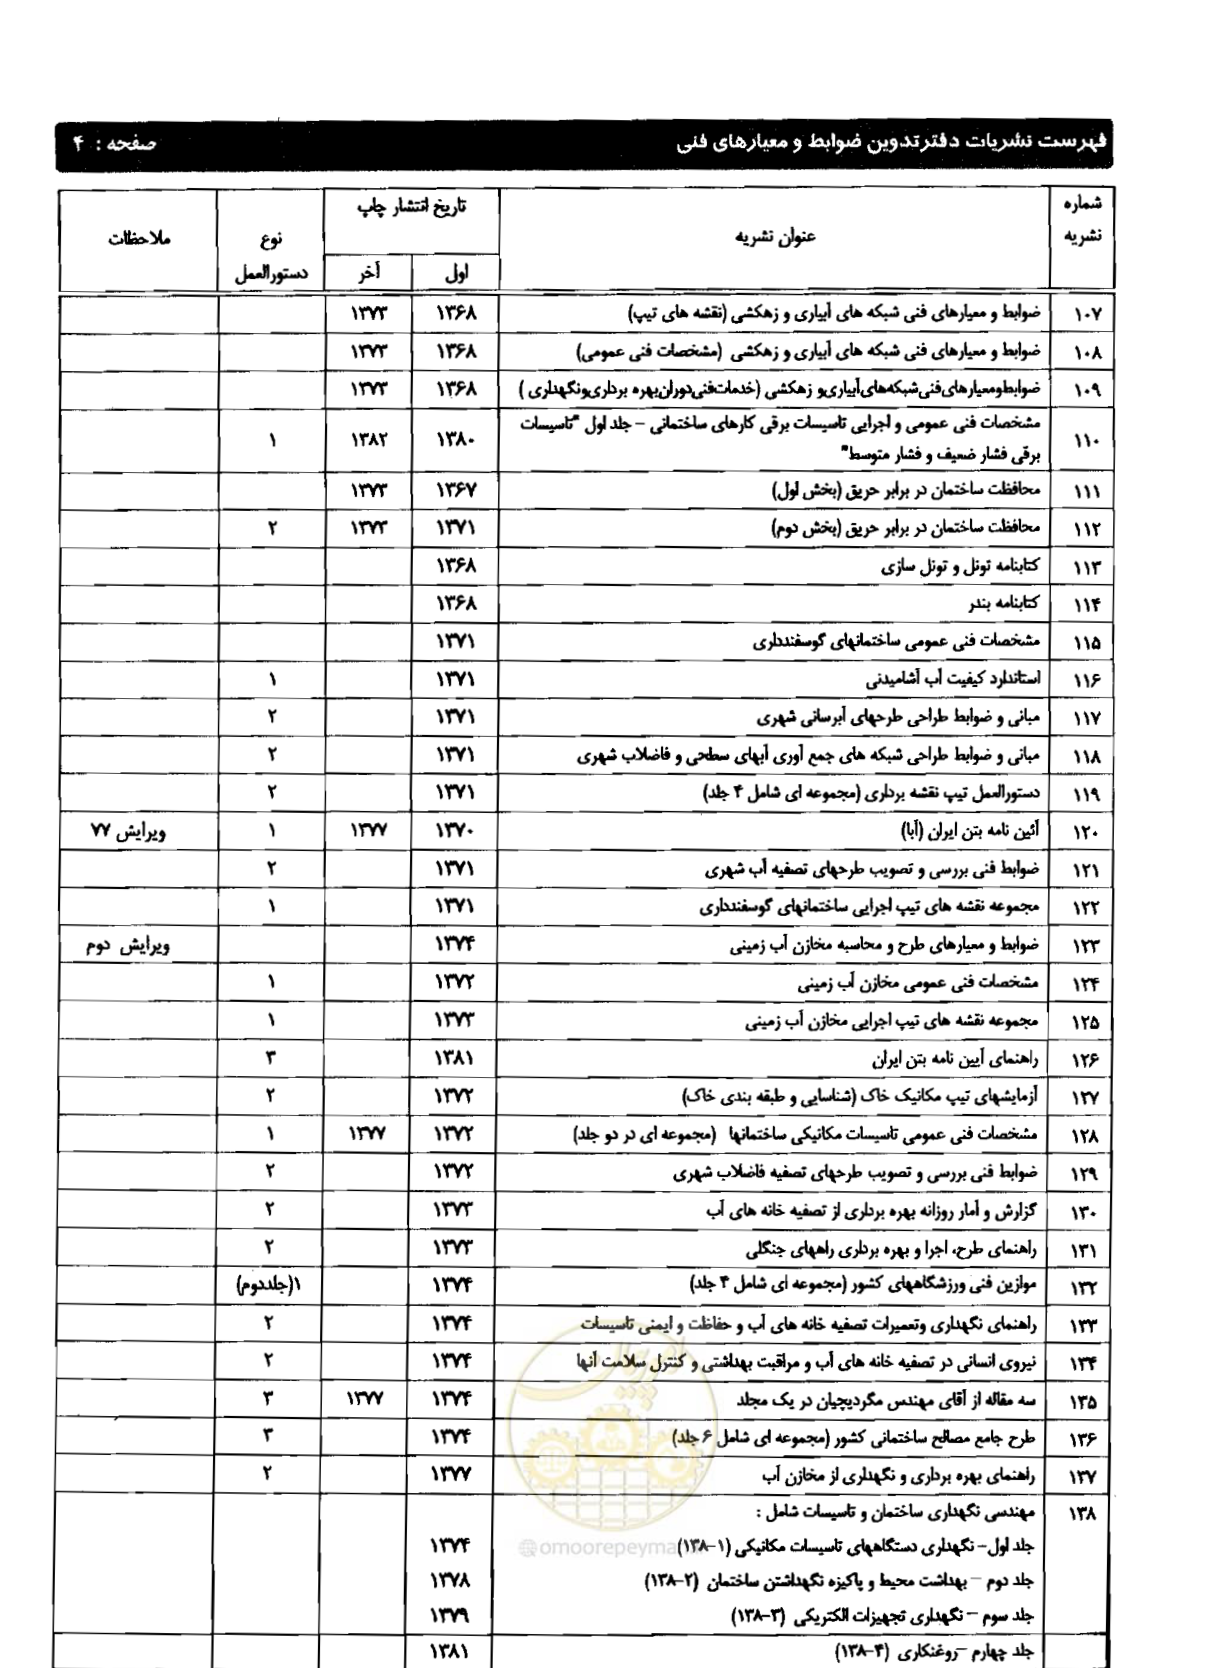 فهرست نشریات دفترتدوین ضوابط و معیارهای فنی صفحه : ۴
شماره نشریه عنوان نشریه تاریخ انتشار چاپ نوع دستورالعمل ملاحظات
اول آخر
۱۰۷ ضوابط و معیارهای فنی شبکه های آبیاری و زهکشی (نقشه های تیپ) ۱۳۶۸ ۱۳۷۳
۱۰۸ ضوابط و معیارهای فنی شبکه های آبیاری و زهکشی (مشخصات فنی عمومی) ۱۳۶۸ ۱۳۷۳
۱۰۹ ضوابط‌ومعیارهای‌فنی‌شبکه‌های‌آبیاری‌و زهکشی (خدمات‌فنی‌دوران‌بهره برداری‌ونگهداری ) ۱۳۶۸ ۱۳۷۳
۱۱۰ مشخصات فنی عمومی و اجرایی تاسیسات برقی کارهای ساختمانی – جلد اول "تاسیسات ۱۳۸۰ ۱۳۸۲ ۱
برقی فشار ضعیف و فشار متوسط"
۱۱۱ محافظت ساختمان در برابر حریق (بخش اول) ۱۳۶۷ ۱۳۷۳
۱۱۲ محافظت ساختمان در برابر حریق (بخش دوم) ۱۳۷۱ ۱۳۷۳ ۲
۱۱۳ کتابنامه تونل و تونل سازی ۱۳۶۸
۱۱۴ کتابنامه بندر ۱۳۶۸
۱۱۵ مشخصات فنی عمومی ساختمانهای گوسفندداری ۱۳۷۱
۱۱۶ استاندارد کیفیت آب آشامیدنی ۱۳۷۱ ۱
۱۱۷ مبانی و ضوابط طراحی طرحهای آبرسانی شهری ۱۳۷۱ ۲
۱۱۸ مبانی و ضوابط طراحی شبکه های جمع آوری آبهای سطحی و فاضلاب شهری ۱۳۷۱ ۲
۱۱۹ دستورالعمل تیپ نقشه برداری (مجموعه ای شامل ۴ جلد) ۱۳۷۱ ۲
۱۲۰ آئین نامه بتن ایران (آبا) ۱۳۷۰ ۱۳۷۷ ۱ ویرایش ۷۷
۱۲۱ ضوابط فنی بررسی و تصویب طرحهای تصفیه آب شهری ۱۳۷۱ ۲
۱۲۲ مجموعه نقشه های تیپ اجرایی ساختمانهای گوسفندداری ۱۳۷۱ ۱
۱۲۳ ضوابط و معیارهای طرح و محاسبه مخازن آب زمینی ۱۳۷۴ ویرایش دوم
۱۲۴ مشخصات فنی عمومی مخازن آب زمینی ۱۳۷۲ ۱
۱۲۵ مجموعه نقشه های تیپ اجرایی مخازن آب زمینی ۱۳۷۳ ۱
۱۲۶ راهنمای آیین نامه بتن ایران ۱۳۸۱ ۳
۱۲۷ آزمایشهای تیپ مکانیک خاک (شناسایی و طبقه بندی خاک) ۱۳۷۲ ۲
۱۲۸ مشخصات فنی عمومی تاسیسات مکانیکی ساختمانها (مجموعه ای در دو جلد) ۱۳۷۲ ۱۳۷۷ ۱
۱۲۹ ضوابط فنی بررسی و تصویب طرحهای تصفیه فاضلاب شهری ۱۳۷۲ ۲
۱۳۰ گزارش و آمار روزانه بهره برداری از تصفیه خانه های آب ۱۳۷۳ ۲
۱۳۱ راهنمای طرح، اجرا و بهره برداری راههای جنگلی ۱۳۷۳ ۲
۱۳۲ موازین فنی ورزشگاههای کشور (مجموعه ای شامل ۴ جلد) ۱۳۷۴ ۱(جلددوم)
۱۳۳ راهنمای نگهداری وتعمیرات تصفیه خانه های آب و حفاظت و ایمنی تاسیسات ۱۳۷۴ ۲
۱۳۴ نیروی انسانی در تصفیه خانه های آب و مراقبت بهداشتی و کنترل سلامت آنها ۱۳۷۴ ۲
۱۳۵ سه مقاله از آقای مهندس مگردیچیان در یک مجلد ۱۳۷۴ ۱۳۷۷ ۳
۱۳۶ طرح جامع مصالح ساختمانی کشور (مجموعه ای شامل ۶ جلد) ۱۳۷۴ ۳
۱۳۷ راهنمای بهره برداری و نگهداری از مخازن آب ۱۳۷۷ ۲
۱۳۸ مهندسی نگهداری ساختمان و تاسیسات شامل :
جلد اول– نگهداری دستگاههای تاسیسات مکانیکی (۱–۱۳۸) ۱۳۷۴
جلد دوم – بهداشت محیط و پاکیزه نگهداشتن ساختمان (۲–۱۳۸) ۱۳۷۸
جلد سوم – نگهداری تجهیزات الکتریکی (۳–۱۳۸) ۱۳۷۹
جلد چهارم –روغنکاری (۴–۱۳۸) ۱۳۸۱